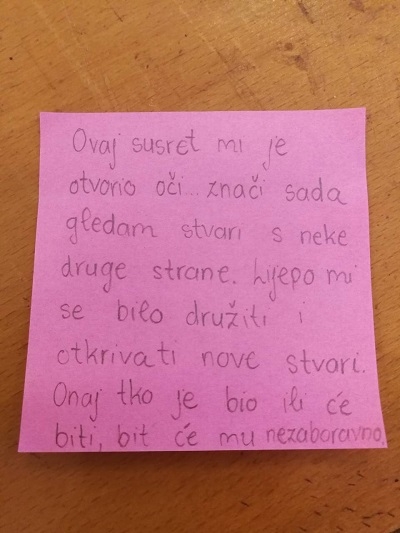 Ovaj susret mi je
otvorio oči... znači sada
gledam stvari s neke
druge strane. Lijepo mi
se bilo družiti i
otkrivati nove stvari.
Onaj tko je bio ili će
biti, bit će mu nezaboravno.